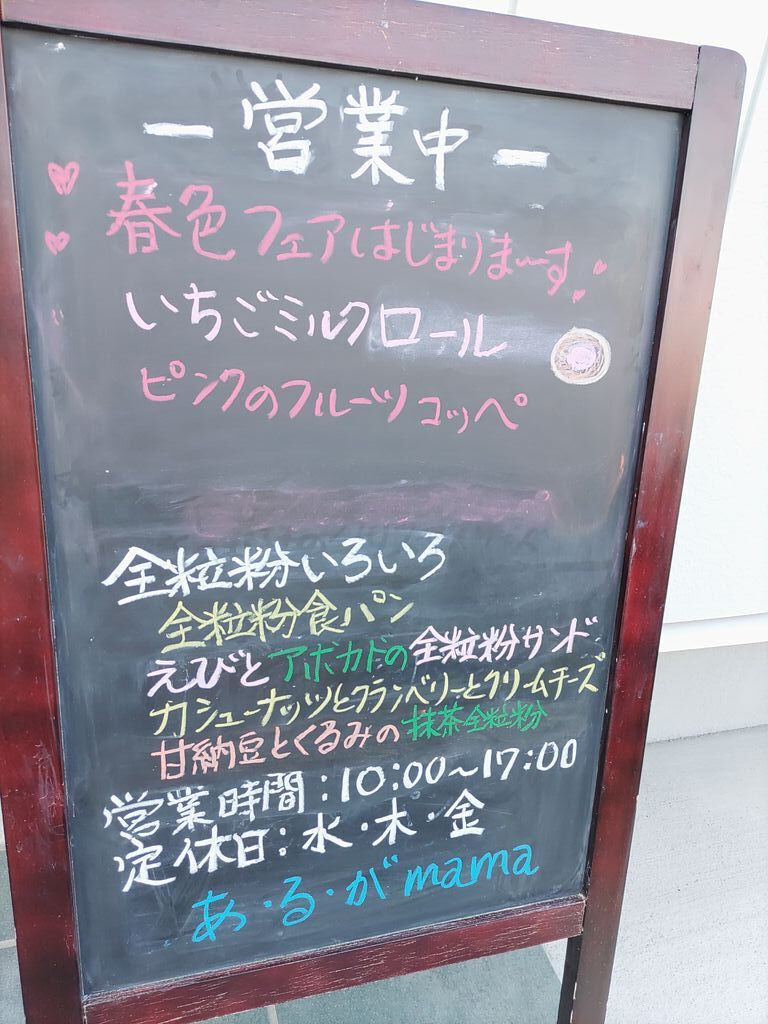 ー営業中ー
春色フェアはじまりまーす
いちごミルクロール
ピンクのフルーツコッペ
全粒粉いろいろ
全粒粉食パン
えびとアボカドの全粒粉サンド
カシューナッツとクランベリーとクリームチーズ
甘納豆とくるみの抹茶全粒粉
営業時間:10:00~17:00
定休日:水・木・金
あ・る・がmama